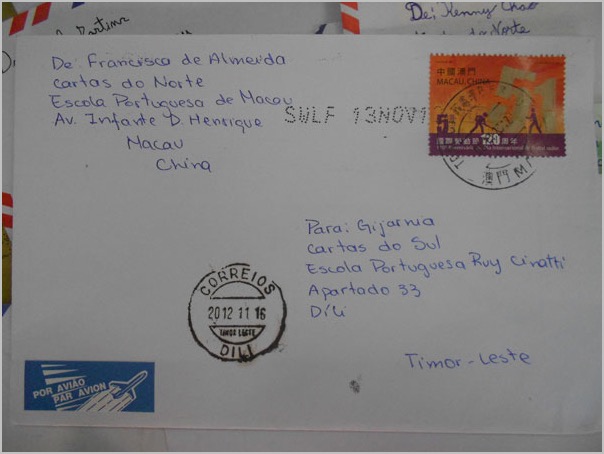 Martins
De: Kenny Chao
De: Francisca de Almeida
Cartas do Norte
Escola Portuguesa de Macau
Av. Infante D. Henrique
Macau
China
SWLF 13NOV1
中國澳門
MACAU, CHINA
51
國際勞動節120周年
澳門 MA
Para: Gijarnia
Cartas do Sul
Escola Portuguesa Ruy Cinatti
Apartado 33
Díli
Timor-Leste
CORREIOS
2012 11 16
TIMOR LESTE
DILI
POR AVIÃO
PAR AVION